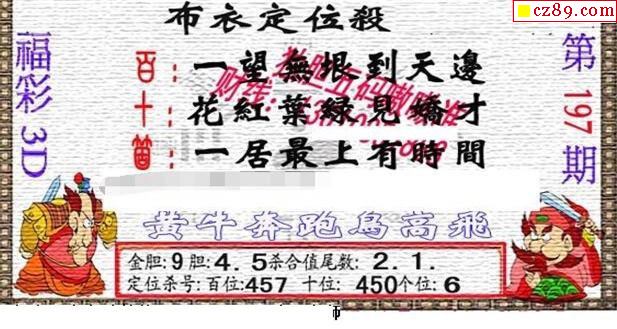 cz89.com
布衣定位殺
福彩3D
第197期
百:一望無垠到天邊
十:花紅葉緑見嬌才
箇:一居最上有時間
黄牛奔跑鳥高飛
金胆:9胆:4.5杀合值尾数:2.1.
定位杀号:百位:457 十位:450个位:6